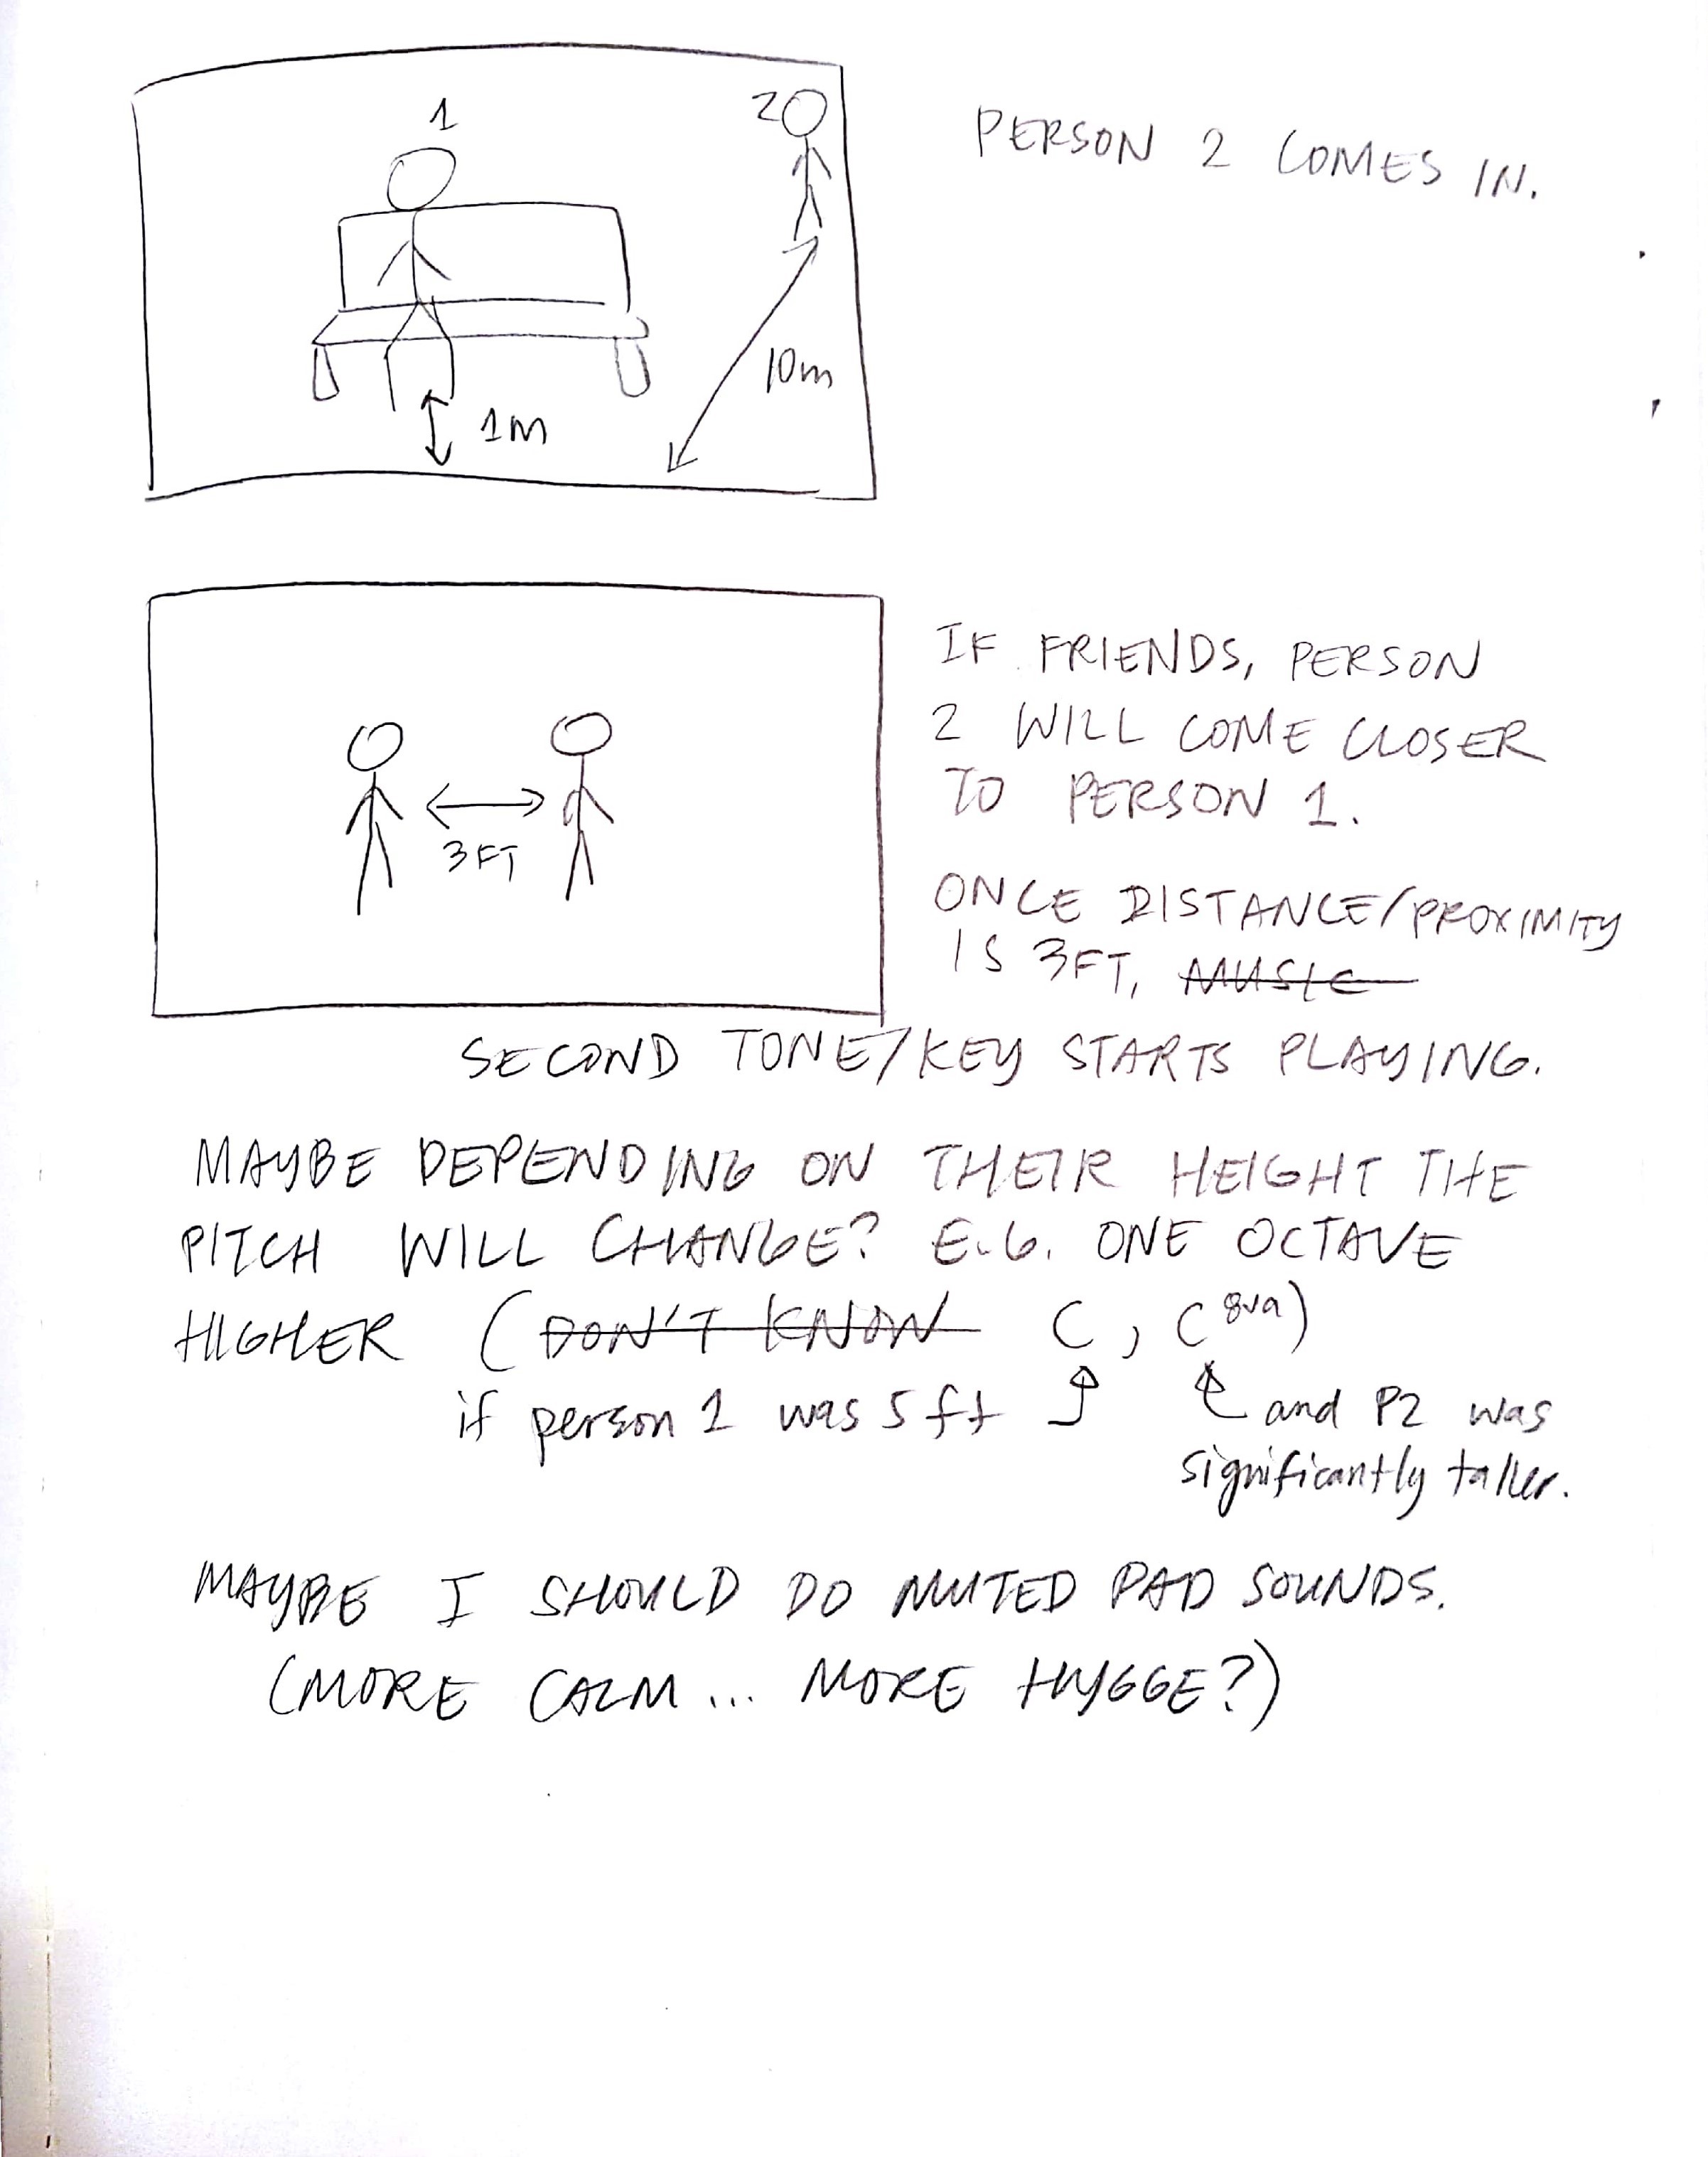 1
2
PERSON 2 COMES IN.
10m
1m
IF FRIENDS, PERSON
2 WILL COME CLOSER
TO PERSON 1.
3FT
ONCE DISTANCE/PROXIMITY
IS 3FT, MUSIC
SECOND TONE/KEY STARTS PLAYING.
MAYBE DEPENDING ON THEIR HEIGHT THE
PITCH WILL CHANGE? E.G. ONE OCTAVE
HIGHER (DON'T KNOW C, C 8va)
if person 1 was 5ft and P2 was
significantly taller.
MAYBE I SHOULD DO MUTED PAD SOUNDS.
(MORE CALM... MORE HYGGE?)